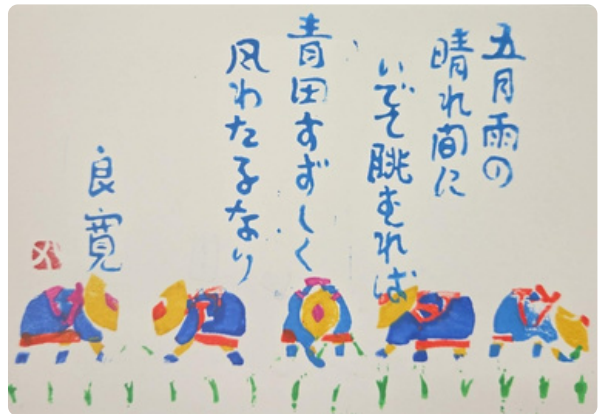 五月雨の
晴れ間に
いでて眺むれば
青田すずしく
風わたるなり
良寛